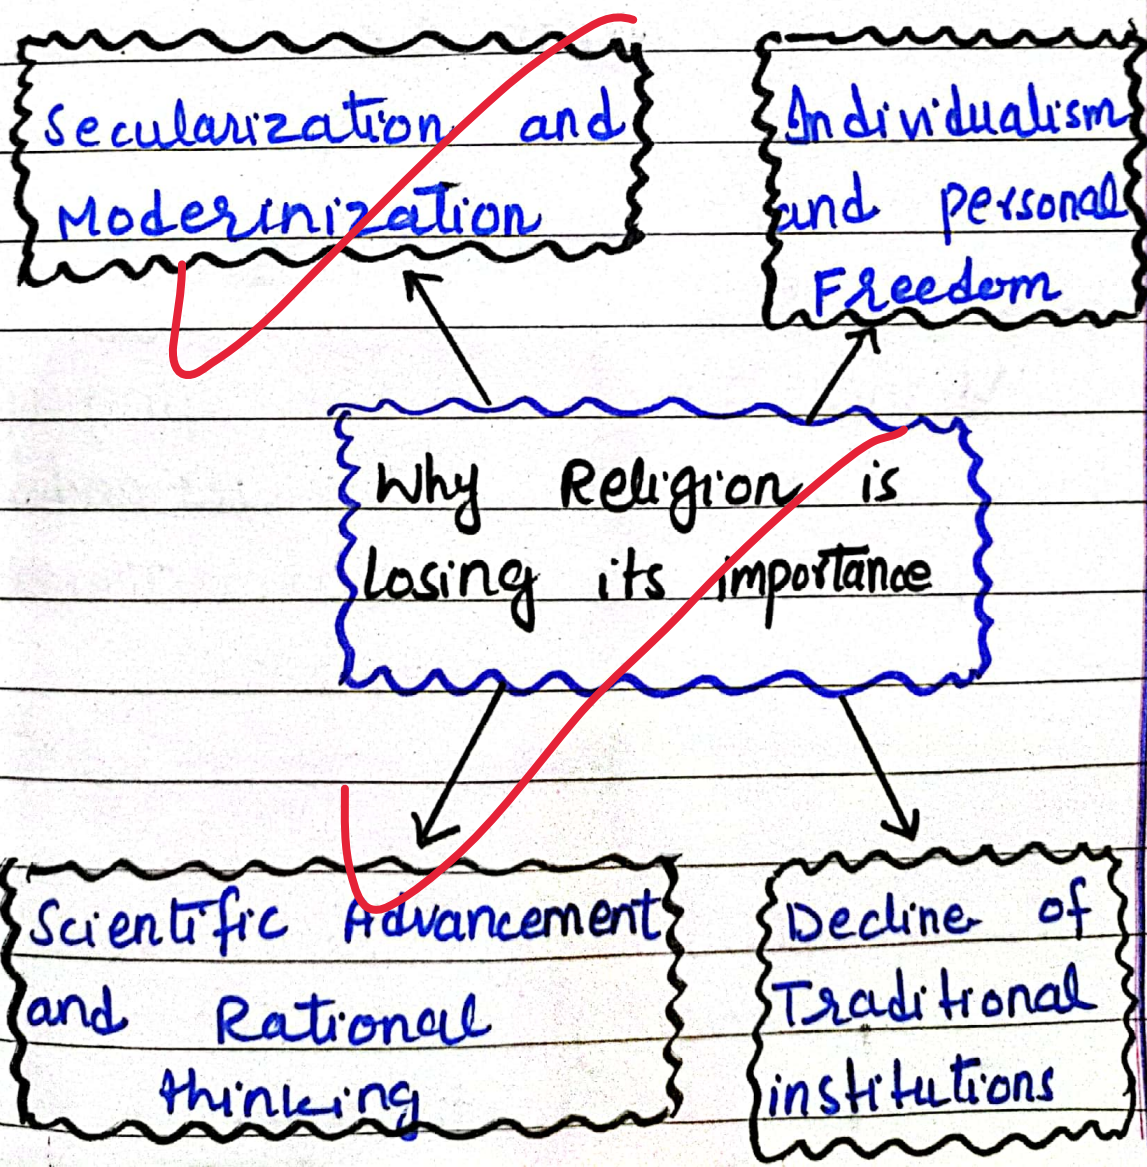 Secularization and
Moderinization
Individualism
and personal
Freedom
Why Religion is
losing its importance
Scientific Advancement
and Rational
thinking
Decline of
Traditional
institutions